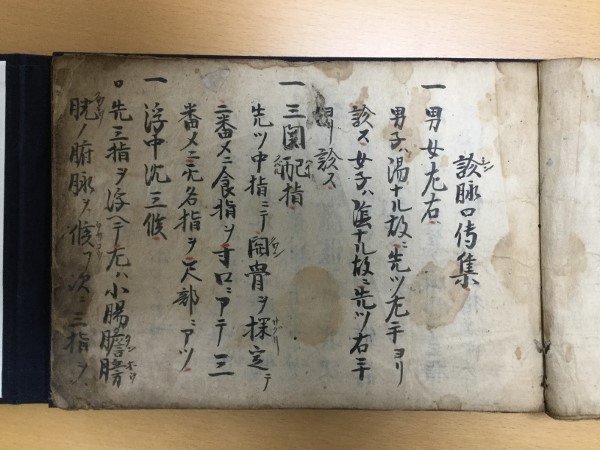 診脉口傳集
一 男女左右
男子ハ陽ナル故ニ先ツ左手ヨリ
診ス女子ハ陰ナル故ニ先ツ右手
ヨリ診ス
一 三関配指
先ツ中指ニテ関骨ヲ探定テ
二番メニ食指ヲ寸口ニアテ三
番メニ无名指ヲ尺部ニアツ
一 浮中沉三候
先三指ヲ浮ヘテ左ハ小腸膽膀
胱ノ腑脉ヲ候フ次ニ三指ヲ